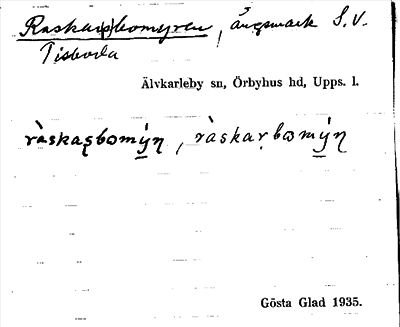 Raskar(s)bomyren, ängsmark S.V.
Tisboda
Älvkarleby sn, Örbyhus hd, Upps. l.
ràskaʂbomýn̥, ràskaṛbomýn̥
Gösta Glad 1935.